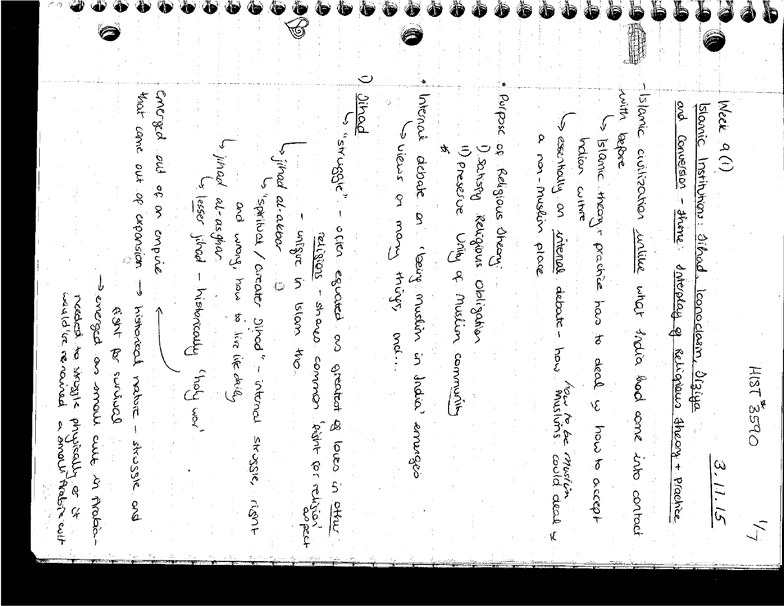 1/7
HIST*3590
Week 9 (1)
3.11.15
Islamic Institutions: Jihad, Iconoclasm, Jiziya
and Conversion - theme: Interplay of Religious theory + practice
- Islamic civilization unlike what India had come into contact
with before
↳ Islamic theory + practice has to deal w how to accept
Indian culture
how to be muslim
↳ essentially an internal debate - how Muslims could deal w
a non-muslim place
• Purpose of Religious theory:
i) satisfy Religious obligation
* ii) Preserve unity of Muslim community
• Internal debate on 'being muslim in India' emerges
↳ views on many things, and...
1) Jihad
↳ "struggle" - often equated as greatest of loves in other
religions - shares common 'fight for religion' aspect
- unique in Islam tho.
↳ jihad al-akbar
↳ "spiritual / Greater Jihad" - internal struggle, right
and wrong, how to live life daily
↳ jihad al-asghar
↳ lesser jihad - historically 'holy war'
emerged out of an empire
that came out of expansion → historical nature - struggle and
fight for survival
→ emerged as small cult in Arabia -
needed to struggle physically or it
would've remained a small Arabic cult